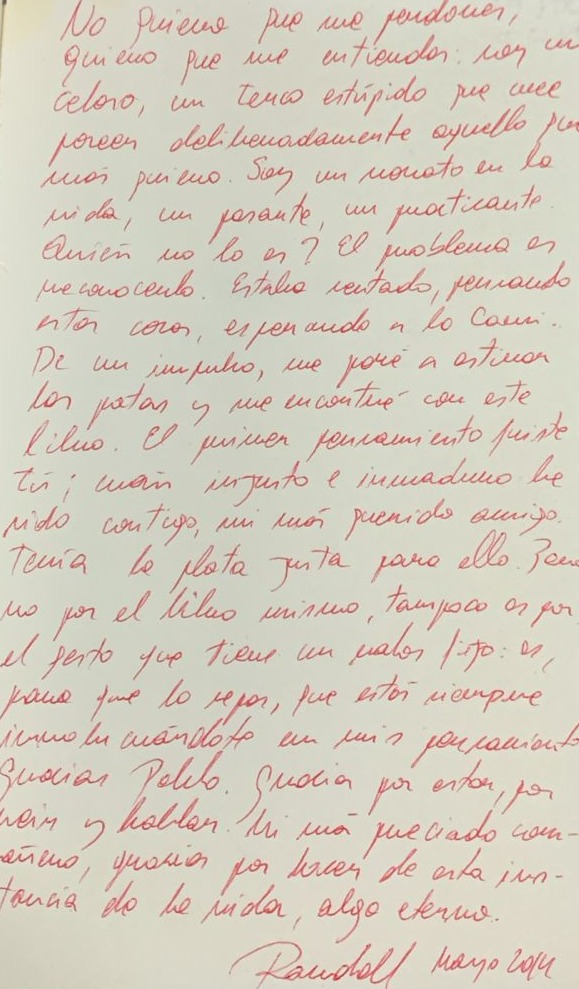 No quiero que me perdones,
quiero que me entiendas: soy un
celoso, un terco estúpido que cree
poseer deliberadamente aquello que
más quiero. Soy un novato en la
vida, un pasante, un practicante.
Quién no lo es? El problema es
reconocerlo. Estaba sentado, pensando
estas cosas, esperando a la Cami.
De un impulso, me paré a estirar
las patas y me encontré con este
libro. El primer pensamiento fuiste
tú; cuán injusto e inmaduro he
sido contigo, mi más querido amigo.
Tenía la plata justa para ello. Pero
no por el libro mismo, tampoco es por
el gesto que tiene un valor fijo: es,
para que lo sepas, que estás siempre
involucrándote en mis pensamientos
Gracias Pablo. Gracias por estar, por
reír y hablar. Mi más preciado com-
pañero, gracias por hacer de esta ins-
tancia de la vida, algo eterno.
Randall Mayo 2014